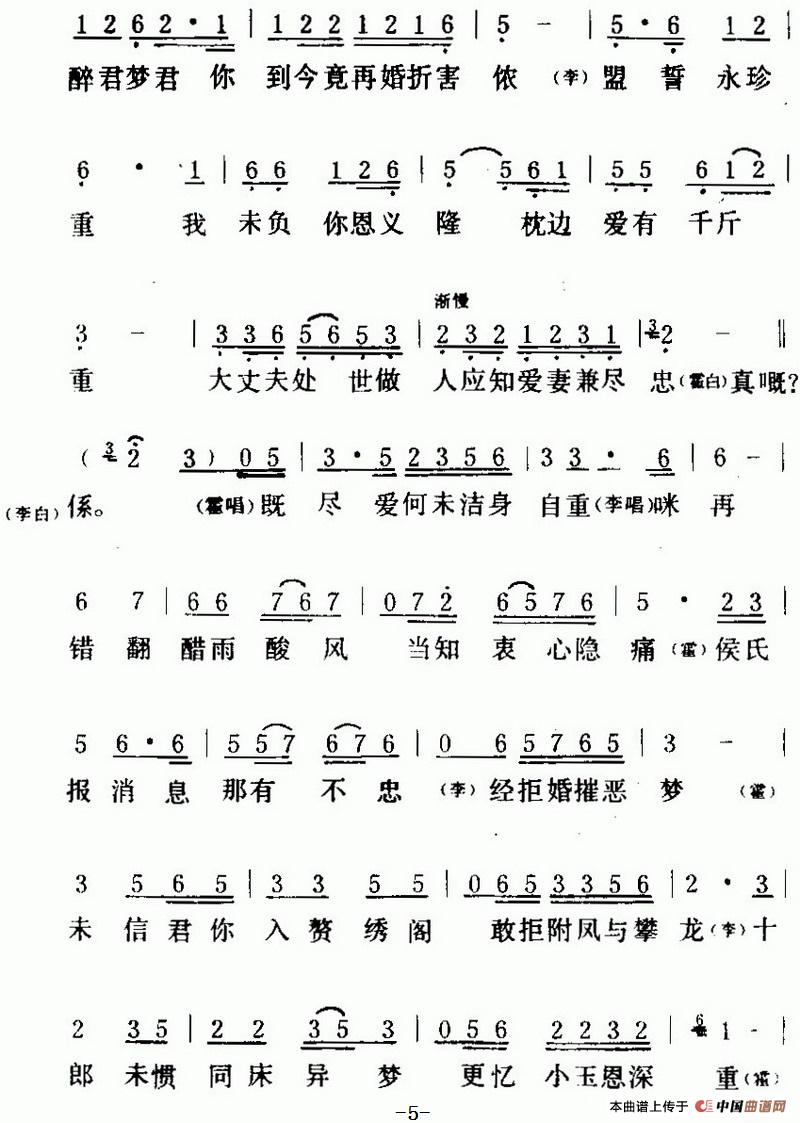 1 2 6 2 · 1 | 1 2 2 1 2 1 6 | 5 - | 5 · 6 1 2 |
醉君梦君 你 到今竟再婚折害 侬 (李) 盟 誓 永珍
6 · 1 | 6 6 1 2 6 | 5 5 6 1 | 5 5 6 1 2 |
重 我 未负 你恩义 隆 枕边 爱有 千斤
渐慢
3 - | 3 3 6 5 6 5 3 | 2 3 2 1 2 3 1 | 3 2 - ‖
重 大丈夫处 世做 人应知爱妻兼尽 忠(霍白)真嘅?
( 3 2 3 ) 0 5 | 3 · 5 2 3 5 6 | 3 3 · 6 | 6 - |
(李白) 係。 (霍唱) 既 尽 爱何未洁身 自重(李唱)咪 再
6 7 | 6 6 7 6 7 | 0 7 2 6 5 7 6 | 5 · 2 3 |
错 翻 醋雨 酸 风 当知 衷 心隐 痛(霍)侯氏
5 6 · 6 | 5 5 7 6 7 6 | 0 6 5 7 6 5 | 3 - |
报 消 息 那有 不 忠 (李) 经拒婚摧恶 梦 (霍)
3 5 6 5 | 3 3 5 5 | 0 6 5 3 3 5 6 | 2 · 3 |
未 信君你 入 赘 绣 阁 敢拒附凤与攀 龙(李)十
2 3 5 | 2 2 3 5 3 | 0 5 6 2 2 3 2 | 6 1 - |
郎 未惯 同 床 异 梦 更忆 小玉恩深 重(霍)
-5-
本曲谱上传于 中国曲谱网